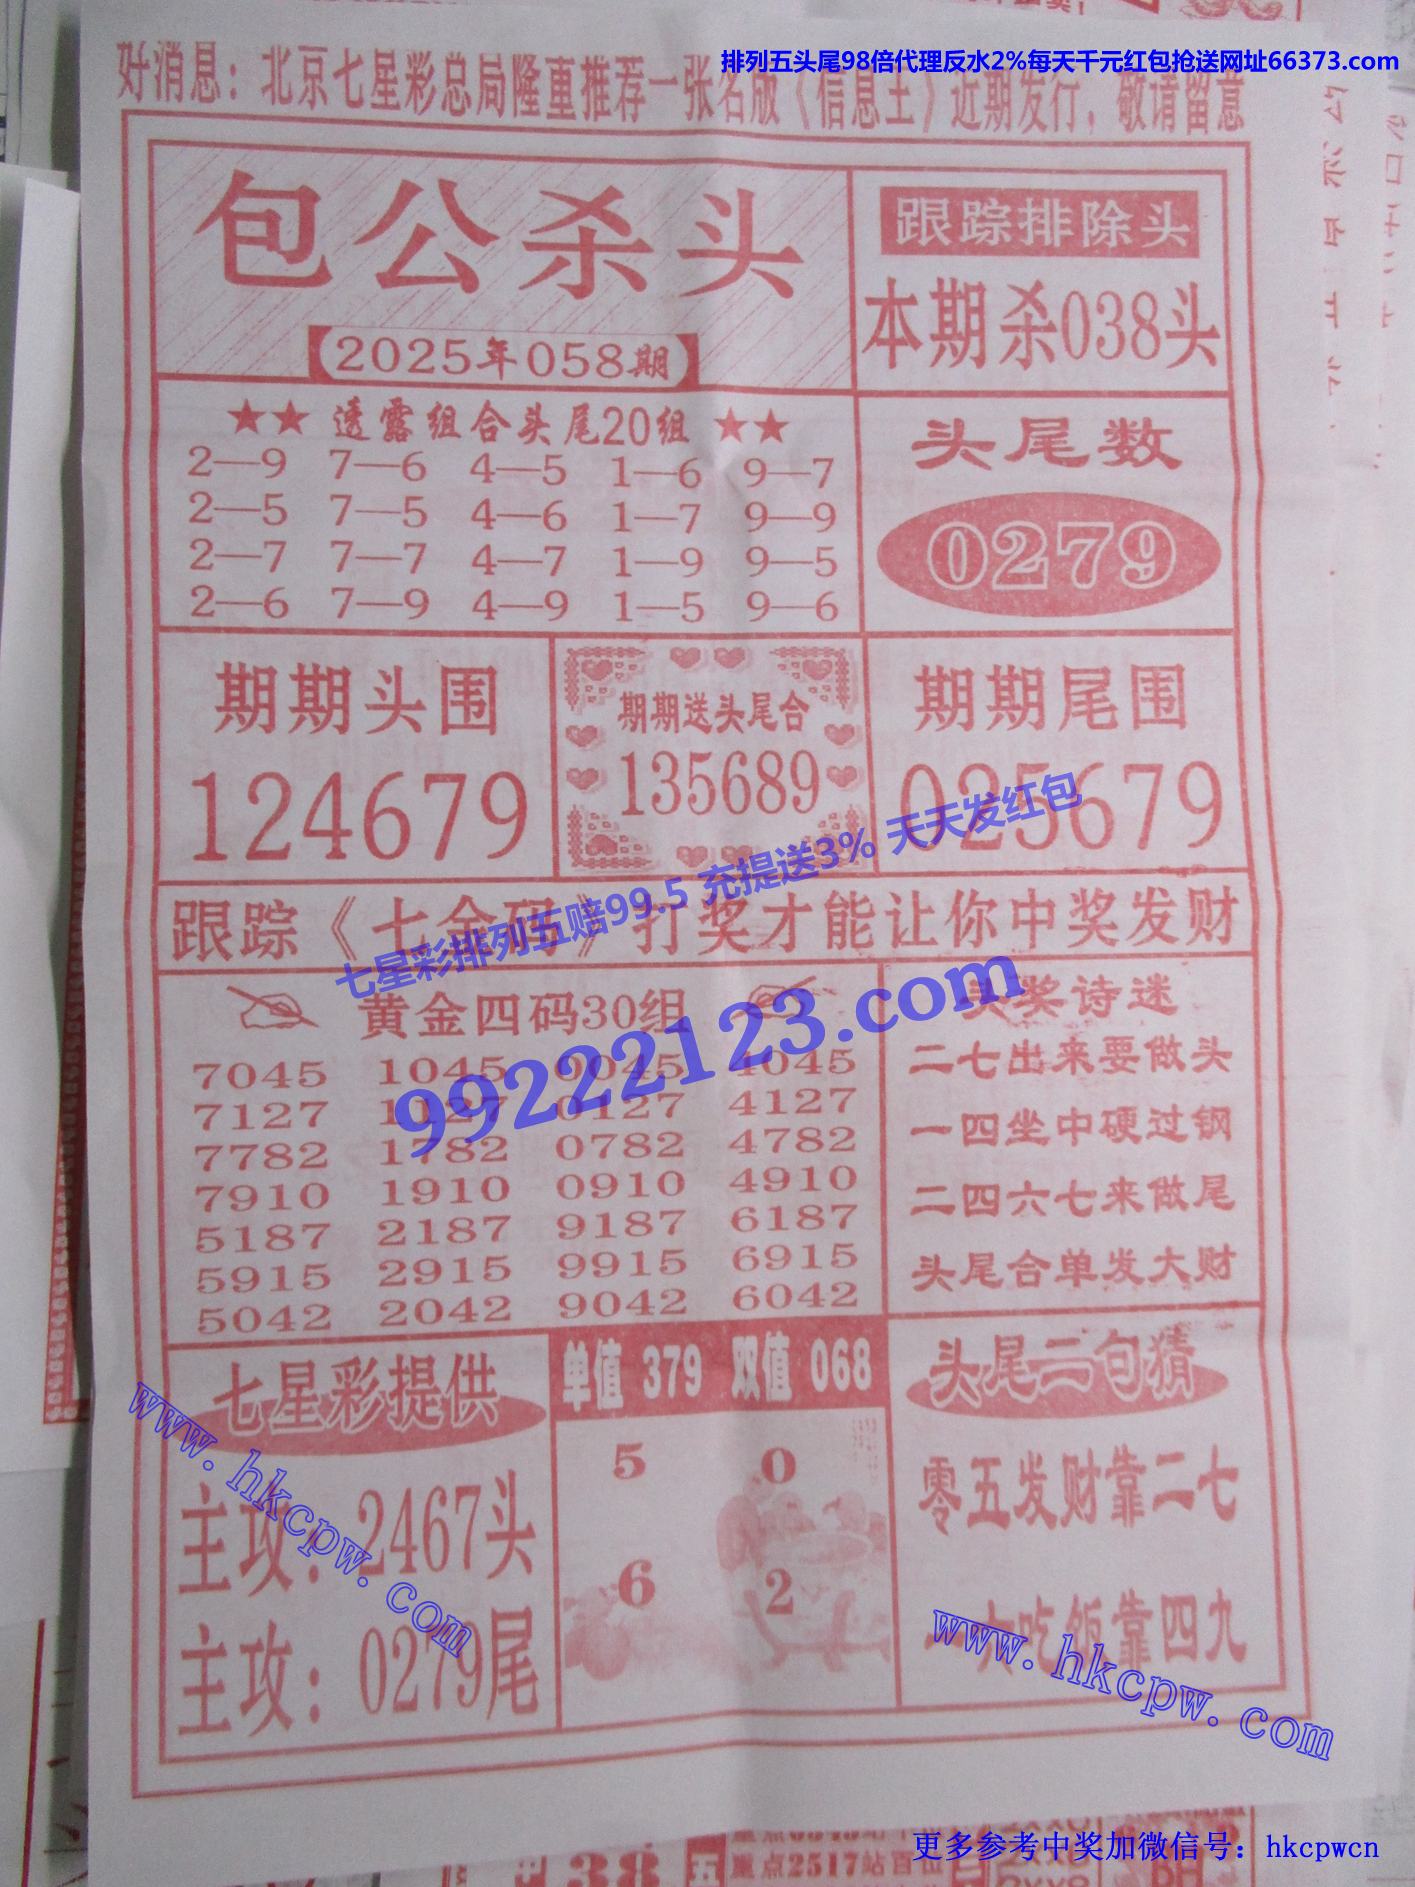 排列五头尾98倍代理反水2%每天千元红包抢送网址66373.com
好消息：北京七星彩总局隆重推荐一张名版《信息王》近期发行，敬请留意
包公杀头
2025年058期
跟踪排除头
本期杀038头
★★ 透露组合头尾20组 ★★
2—9 7—6 4—5 1—6 9—7
2—5 7—5 4—6 1—7 9—9
2—7 7—7 4—7 1—9 9—5
2—6 7—9 4—9 1—5 9—6
头尾数
0279
期期头围
124679
期期送头尾合
135689
期期尾围
025679
七星彩排列五赔99.5 充提送3% 天天发红包
99222123.com
跟踪《七金码》打奖才能让你中奖发财
黄金四码30组
7045 1045 0045 4045
7127 1127 0127 4127
7782 1782 0782 4782
7910 1910 0910 4910
5187 2187 9187 6187
5915 2915 9915 6915
5042 2042 9042 6042
头奖诗迷
二七出来要做头
一四坐中硬过钢
二四六七来做尾
头尾合单发大财
七星彩提供
主攻：2467头
主攻：0279尾
单值 379 双值 068
5 0
6 2
头尾二句猜
零五发财靠二七
一六吃饭靠四九
www.hkcpw.com
www.hkcpw.com
重点2517站百位
38
更多参考中奖加微信号：hkcpwcn